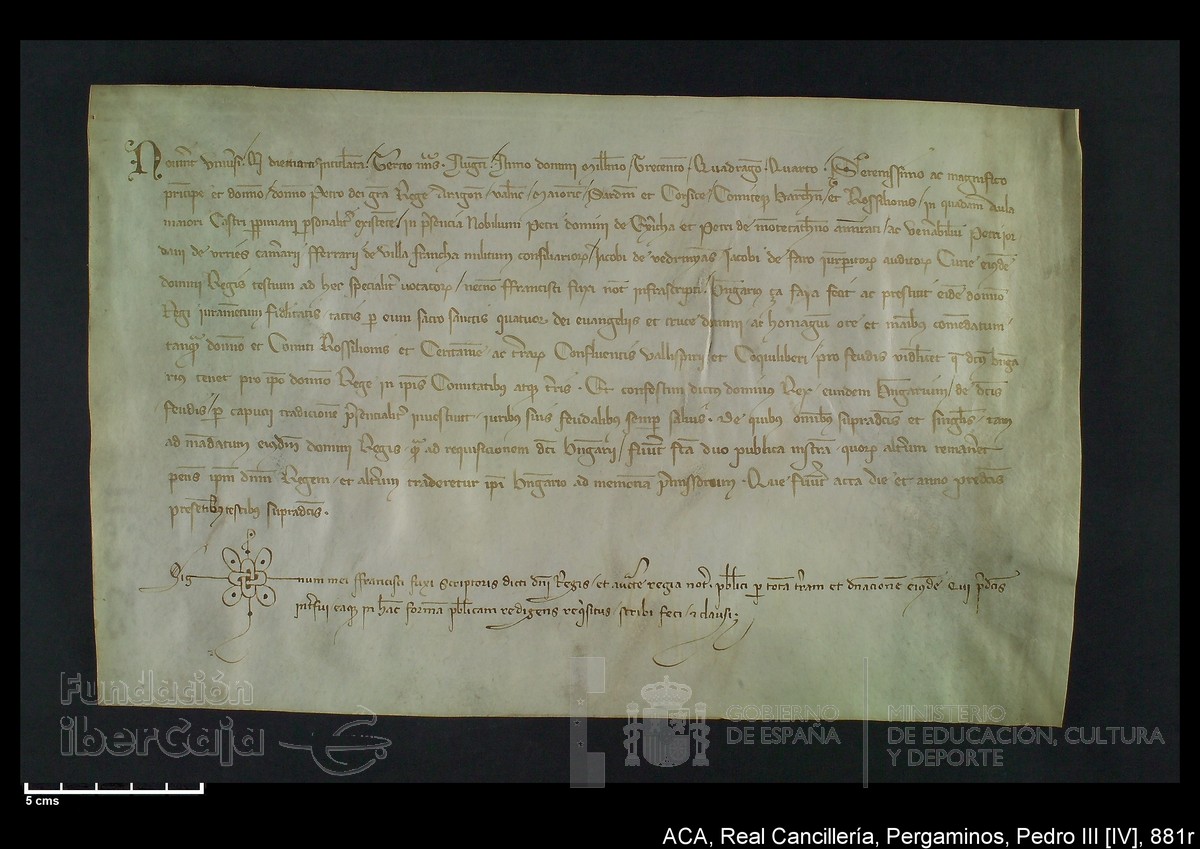 Noverint universi. Qd die martis intitulata. Tercio nonas. August. Anno domini Millesimo Trecentesimo Quadragesimo Quarto. Serenissimo ac magnifico
principe et domino domino Petro dei gra Rege Aragon, Valenc, Maioric, Sardin et Corsice, Comiteq Barchn, et Rossilionis, in quadam Aula
maiori Castri perpiniani psonalit existente, in psencia Nobilium Petri domini de Exericha et Petri de montecatheno amirati, ac venerabiliu Petri jor
dani de urries camarii fferrarii de villa francha militum consiliarior, Jacobi de Jacobi de faro iurpitor auditor Curie eiusde
domini Regis testium ad hec specialit vocator, necnon ffrancisci fuxi not infrascripti. Hngarius ça faxa fecit ac prestitit eide domino
Regi iuramentum fidelitatis, tactis p eum sacro sanctis quatuor dei evangeliis et cruce domini ac homagiu ore et manibus comendatum
tanq domino et Comiti Rossilionis et Ceritanie ac trar Confluentis Vallispirii et Coquiliberi, pro feudis vidlicet q dcus Hnga
rius tenet pro ipo domino Rege in ipis Comitatibus atq tris. Et confestim dictus dominus Rex, eundem Hngarium, de dcis
feudis, p capucii tradicione psencialit investivit, iuribus suis feudalibus semper salvis. De quibus omnibus supradcis et singlis, tam
ad mandatum eiusdm domini Regis, q ad requisicionem dci Hngarii, fuert fca duo publica instra, quor altum remaneret
penes ipm dnm Regem, et altum traderetur ipi Hngario ad memoria pmissorum. Que fuert acta die et anno predcis
presentibus testibus supradcis.
Sig num mei ffrancisci fuxi scriptoris dicti dni Regis, et aucte regia not. pblici p tota tram et dnacione eiusde Qui pdcis
interfui eaq in hac forma pblicam redigens requisitus scribi feci, et clausi;
Fundación
iberCaja
GOBIERNO
DE ESPAÑA
MINISTERIO
DE EDUCACIÓN, CULTURA
Y DEPORTE
5 cms
ACA, Real Cancillería, Pergaminos, Pedro III [IV], 881r